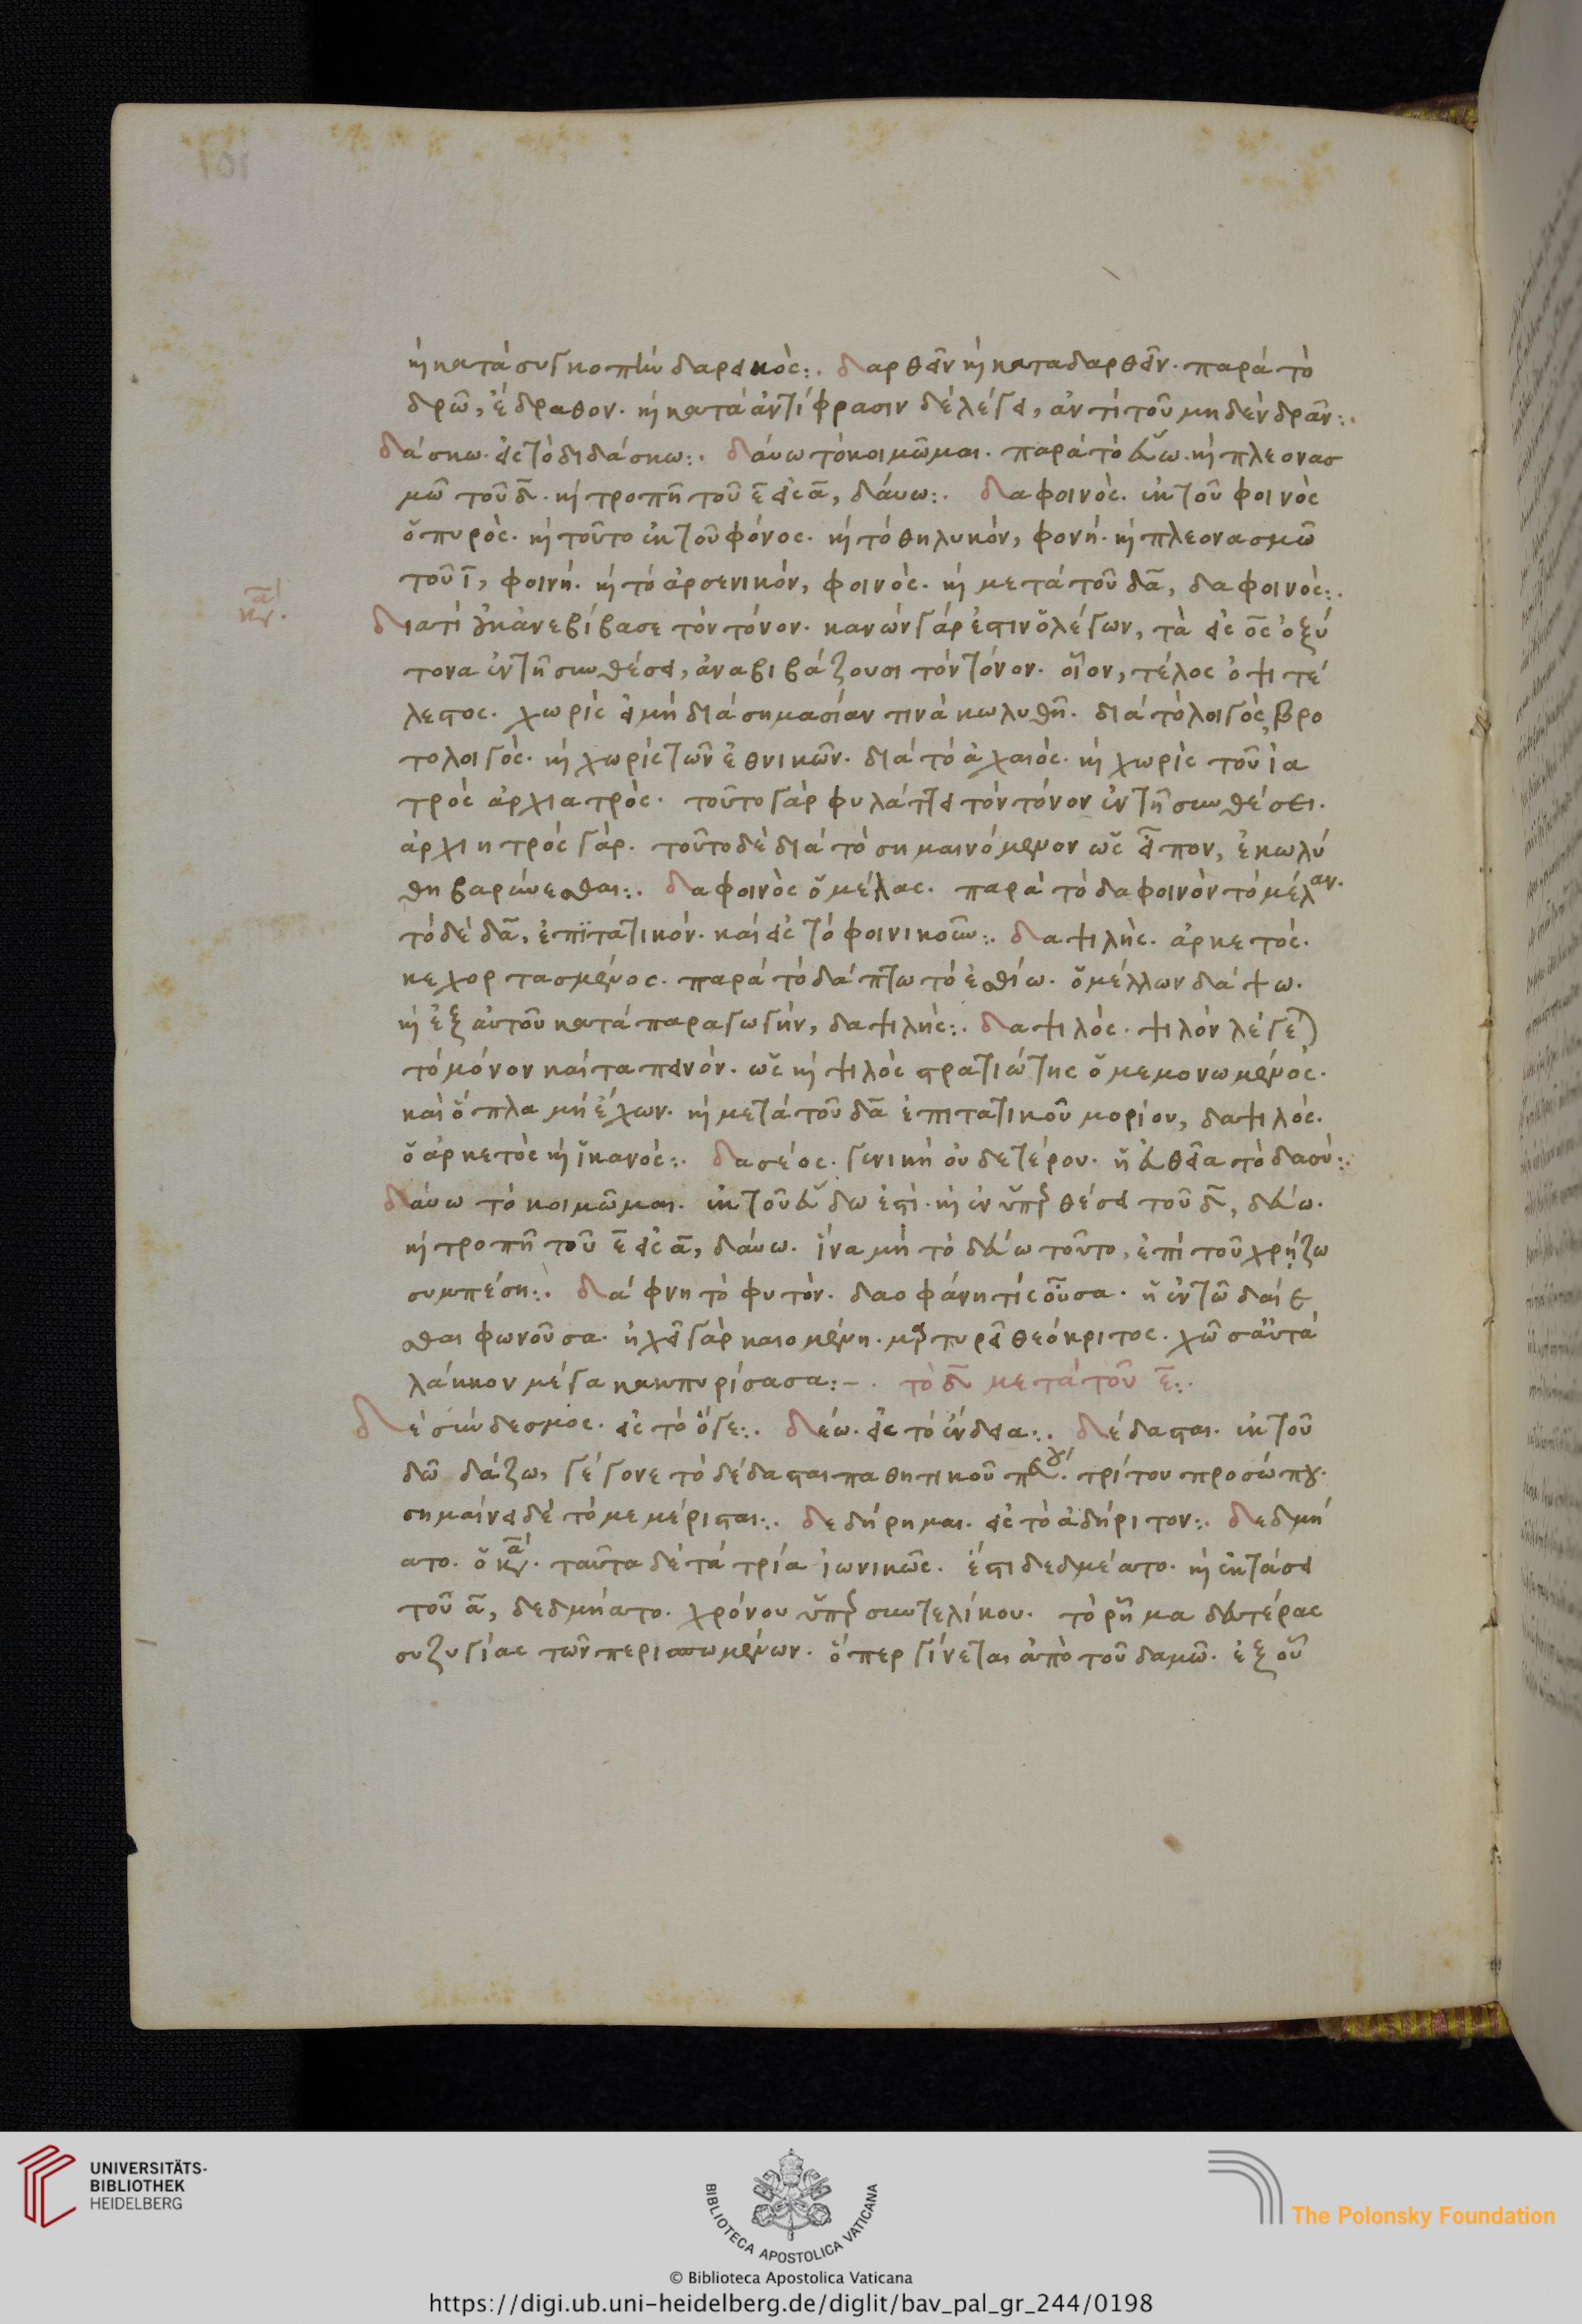 καὶ κατὰ συγκοπὴν δαρεικός:. δαρθεῖν καὶ καταδαρθεῖν. παρὰ τὸ
δρῶ, ἔδραθον. καὶ κατὰ ἀντίφρασιν δὲ λέγει, ἀντὶ τοῦ μηδὲν δρᾶν:.
δάσκω. εἰς τὸ διδάσκω:. δαύω τὸ κοιμῶμαι. παρὰ τὸ εὕω. καὶ πλεονας
μῶ τοῦ δ. καὶ τροπῆ τοῦ ε εἰς α, δαύω:. δαφοινός. ἐκ τοῦ φοινὸς
ὁ πυρός. καὶ τοῦτο ἐκ τοῦ φόνος. καὶ τὸ θηλυκόν, φονή. καὶ πλεονασμῶ
τοῦ ι, φοινή. καὶ τὸ ἀρσενικόν, φοινός. καὶ μετὰ τοῦ δα, δαφοινός:.
διατί οὐκ ἀνεβίβασε τὸν τόνον. κανὼν γάρ ἐστιν ὁ λέγων, τὰ εἰς ος ὀξύ
τονα ἐν τῆ συνθέσει, ἀναβιβάζουσι τὸν τόνον. οἷον, τέλος ὀψιτέ
λεστος. χωρὶς εἰ μὴ διὰ σημασίαν τινὰ κωλυθῆ. διὰ τὸ λοιγός, βρο
τολοιγός. καὶ χωρὶς τῶν ἐθνικῶν. διὰ τὸ ἀχαιός. καὶ χωρὶς τοῦ ἰα
τρὸς ἀρχιατρός. τοῦτο γὰρ φυλάττει τὸν τόνον ἐν τῆ συνθέσει.
ἀρχιητρὸς γάρ. τοῦτο δὲ διὰ τὸ σημαινόμενον ὡς εἶπον, ἐκωλύ
θη βαρύνεσθαι:. δαφοινὸς ὁ μέλας. παρὰ τὸ δαφοινὸν τὸ μέλαν.
τὸ δὲ δα, ἐπϊτατικόν. καὶ εἰς τὸ φοινικοῦν:. δαψιλής. ἀρκετός.
κεχορτασμένος. παρὰ τὸ δάπτω τὸ ἐσθίω. ὁ μέλλων δάψω.
καὶ ἐξ αὐτοῦ κατὰ παραγωγήν, δαψιλής:. δαψιλός. ψιλὸν λέγεται
τὸ μόνον καὶ ταπεινόν. ὡς καὶ ψιλὸς στρατιώτης ὁ μεμονωμένος.
καὶ ὅπλα μὴ ἔχων. καὶ μετὰ τοῦ δα ἐπιτατικοῦ μορίου, δαψιλός.
ὁ ἀρκετὸς καὶ ἱκανός:. δασέος. γενικὴ οὐδετέρου. ἡ εὐθεῖα τὸ δασύ:.
δαύω τὸ κοιμῶμαι. ἐκ τοῦ εὕδω ἐστί. καὶ ἐν ὑπερθέσει τοῦ δ, δεύω.
καὶ τροπῆ τοῦ ε εἰς α, δαύω. ἵνα μὴ τὸ δεύω τοῦτο, ἐπὶ τοῦ χρήζω
συμπέση:. δάφνη τὸ φυτόν. δαοφάνη τὶς οὖσα. ἡ ἐν τῶ δαίε
σθαι φωνοῦσα. ἠχεῖ γὰρ καιομένη. μαρτυρεῖ θεόκριτος. χῶσ αὕτα
λάκκον μέγα κακπυρίσασα:-. τὸ δ μετὰ τοῦ ε:.
δὲ σύνδεσμος. εἰς τὸ ὅγε:. δέω. εἰς τὸ ἔνδεια:. δέδασται. ἐκ τοῦ
δῶ δάζω, γέγονε τὸ δέδασται παθητικοῦ πρκ. τρίτου προσώπου.
σημαίνει δὲ τὸ μεμέρισται:. δεδήρημαι. εἰς τὸ ἀδήριτον:. δεδμή
ατο. ὁ κανα. ταῦτα δὲ τὰ τρία ἰωνικῶς. ἔστι δεδμέατο. καὶ ἐκτάσει
τοῦ α, δεδμήατο. χρόνου ὑπερσυντελίκου. τὸ ῥῆμα δευτέρας
συζυγίας τῶν περισπωμένων. ὅπερ γίνεται ἀπὸ τοῦ δαμῶ. ἐξ οὗ
UNIVERSITÄTS-
BIBLIOTHEK
HEIDELBERG
BIBLIOTECA APOSTOLICA VATICANA
The Polonsky Foundation
© Biblioteca Apostolica Vaticana
https://digi.ub.uni-heidelberg.de/diglit/bav_pal_gr_244/0198